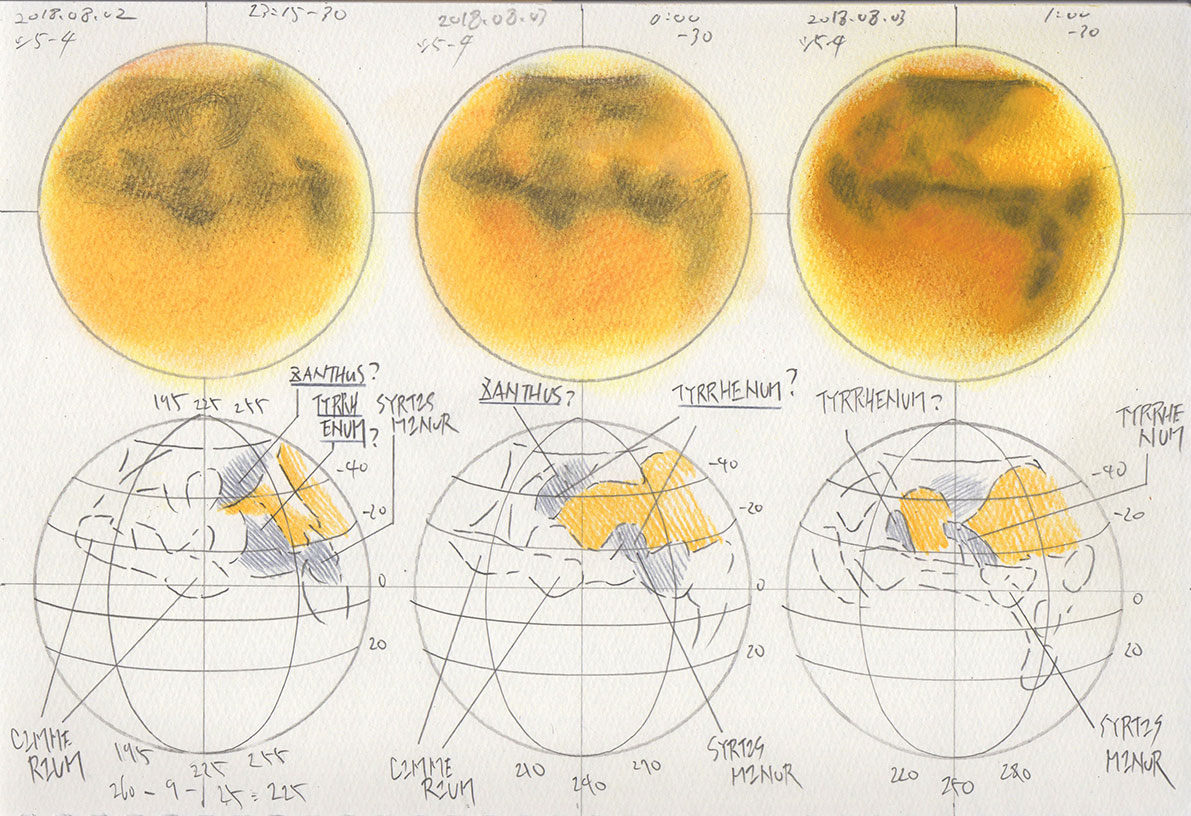 2018.08.02 23:15-30
5-4
2018.08.03 0:00
-30
5-4
2018.08.03 1:00
-30
5-4
XANTHUS?
TYRRH
ENUM?
SYRTIS
MINOR
195 225 255
-40
-20
0
20
CIMME
RIUM
195 225 255
260-9-25=225
XANTHUS?
TYRRHENUM?
-40
-20
0
20
CIMME
RIUM
210 240 270
SYRTIS
MINOR
TYRRHENUM?
TYRRHE
NUM
-40
-20
0
20
220 250 280
SYRTIS
MINOR